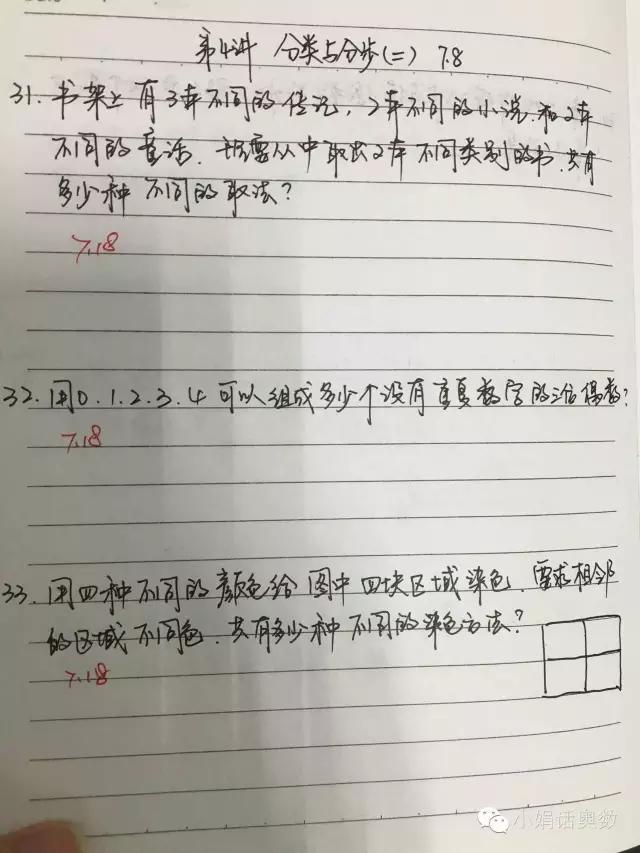 第4讲 分类与分步(二) 7.8
31. 书架上有3本不同的传记，2本不同的小说和2本
不同的童话．现要从中取出2本不同类别的书．共有
多少种不同的取法？
7.18
32. 用0.1.2.3.4可以组成多少个没有重复数字的三位偶数？
7.18
33. 用四种不同的颜色给图中四块区域染色．要求相邻
的区域不同色．共有多少种不同的染色方法？
7.18
小娟话奥数